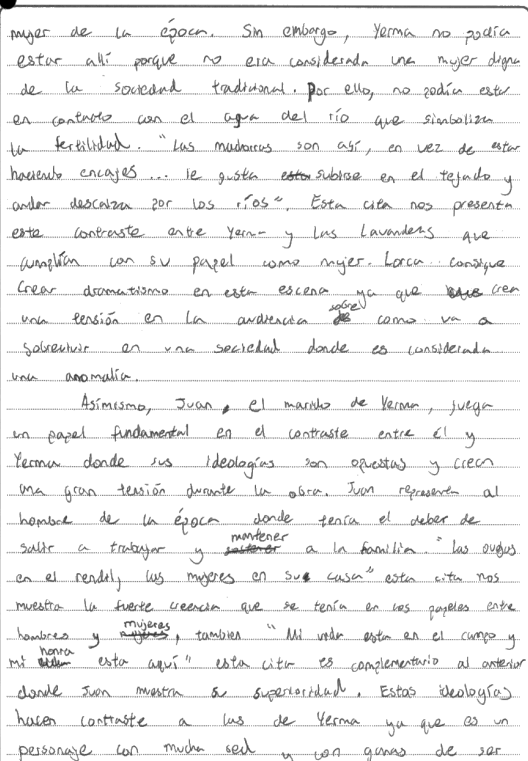 mujer de la época. Sin embargo, Yerma no podía
estar allí porque no era considerada una mujer digna
de la sociedad tradicional. Por ello, no podía estar
en contacto con el agua del río que simboliza
la fertilidad. "Las machorras son así, en vez de estar
haciendo encajes... le gusta subirse en el tejado y
andar descalza por los ríos". Esta cita nos presenta
este contraste entre Yerma y las Lavanderas que
cumplían con su papel como mujer. Lorca consigue
crear dramatismo en esta escena ya que crea
una tensión en la audiencia sobre como va a
sobrevivir en una sociedad donde es considerada
una anomalía.
Asimismo, Juan, el marido de Yerma, juega
un papel fundamental en el contraste entre él y
Yerma donde sus ideologías son opuestas y crean
una gran tensión durante la obra. Juan representa al
hombre de la época donde tenía el deber de
salir a trabajar y mantener a la familia. "Las ovejas
en el redil, las mujeres en su casa" esta cita nos
muestra la fuerte creencia que se tenía en los papeles entre
hombres y mujeres, tambien "Mi vida esta en el campo y
mi honra esta aquí" esta cita es complementario al anterior
donde Juan muestra su superioridad. Estas ideologías
hacen contraste a las de Yerma ya que es un
personaje con mucha sed y con ganas de ser